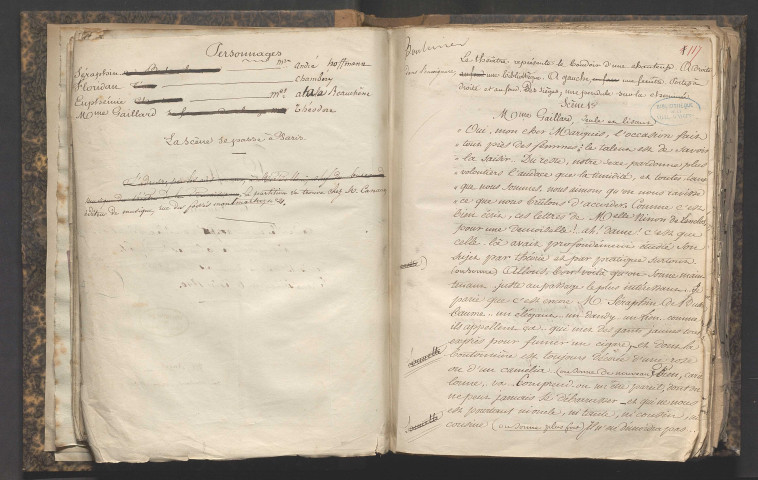 Personnages
Séraphin mrs André hoffmann
Floridan Chambéry
Euphémie mes Beauchène
Mme Gaillard Théodore
La scène se passe à Paris.
la partition se trouve chez M.
éditeur de musique, rue des fossés montmartre
117
Le théâtre représente le boudoir d'une A droite
une bibliothèque. A gauche, une fenêtre. Portes à
droite et au fond. Des sièges, une pendule sur la cheminée
Scène 1re
Mme Gaillard, seule en lisant
« Oui, mon cher Marquis, l'occasion fait
« tout près des femmes; le talent est de savoir
« la saisir. Du reste, notre sexe pardonne plus
« volontiers l'audace que la timidité, et toutes tant
« que nous sommes, nous aimons qu'on nous ravisse
« ce que nous brûlons d'accorder. Comme c'est
bien écrit, ces lettres de Melle Ninon de Lenclos
pour une demoiselle! ah! dame! c'est que
celle là avait profondément étudié son
sujet par théorie et par pratique surtout.
(on sonne) Allons, bon! voilà qu'on sonne main
tenant, juste au passage le plus intéressant. Je
parie que c'est encore M. Séraphin de
baume.. un élégant.. un dandy.. un lion.. comme
ils appellent ça.. qui met des gants jaunes tout
exprès pour fumer un cigare, et dont la
boutonnière est toujours décorée d'une rose
ou d'un camélia. (on sonne de nouveau)
sonnette
lonne, va. Comprend on un être pareil, dont on
ne peut jamais se débarrasser.. et qui ne nous
est pourtant ni oncle, ni tante, ni cousin, ni
sonnette
cousine (on sonne plus fort) Il n'en démordra pas...